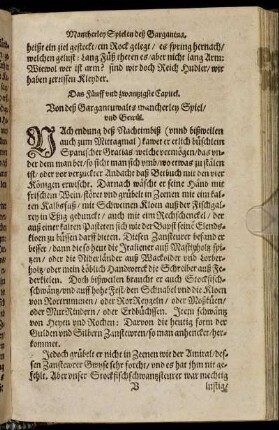 Mancherley Spielen deß Gargantua,
heißt ein ziel gesteckt / ein Rock gelegt / es spring hernach /
welchen gelust: lang Füß theten es / aber nicht lang Arm:
Wiewol wer ist arm? sind wir doch Reich Hudler / wir
haben zerrissen Kleyder.
Das Fünff und zwantzigste Capitel.
Von deß Gargantuwalts mancherley Spiel /
und Gewül.
NAch endung deß Nachtimbiß (unnd bißweilen
auch zum Mittagmal) kawet er etlich bißichtem
Spanischer Gratias welche vermögen / das un-
der dem man bet / so sicht man sich umb / wo etwas zu stälen
ist / oder vor verzuckter Andacht daß Betbuch mit den vier
Königen erwischt. Darnach wäscht er seine Händ mit
frischem Wein / störet und grübelt in Zeenen mit eim kal-
ten Kalbsfuß / mit Schweinen Kloen auß der Fischgal-
rey in Essig gedunckt / auch mit eim Rechschenckel / der
auß einer kalten Pasteten sich wie der Bapst seine Elends-
kloen zu küssen darff bieten. Diesen Zansteurer befand er
besser / dann die so heut die Italiener auß Mastixholtz spi-
tzen / oder die Niderländer auß Wackolder und Lorber-
holtz / oder mein löblich Handwerck die Schreiber auß Fe-
derkielen. Doch bißweilen braucht er auch Stockfisch-
schwäntz / und auff hohe Zeit der Schnäbel und die Kloen
von Rorcrummen / oder RotReygeln / oder Moßkühen /
oder MurRindern / oder Erdbüchssen. Item schwäntz
von Heyen und Rochen: Darvon die heutig form der
Gulden und Silbern Zansteuren / so man anhencket / her-
kommet.
Jedoch grübelt er nicht in Zeenen wie der Amiral / des-
sen Zansteurer Gwyse sehr forcht / und es hat ihm nit ge-
fehlt. Aber unser Stockfischschwantzsteurer war mechtig
V lustig /